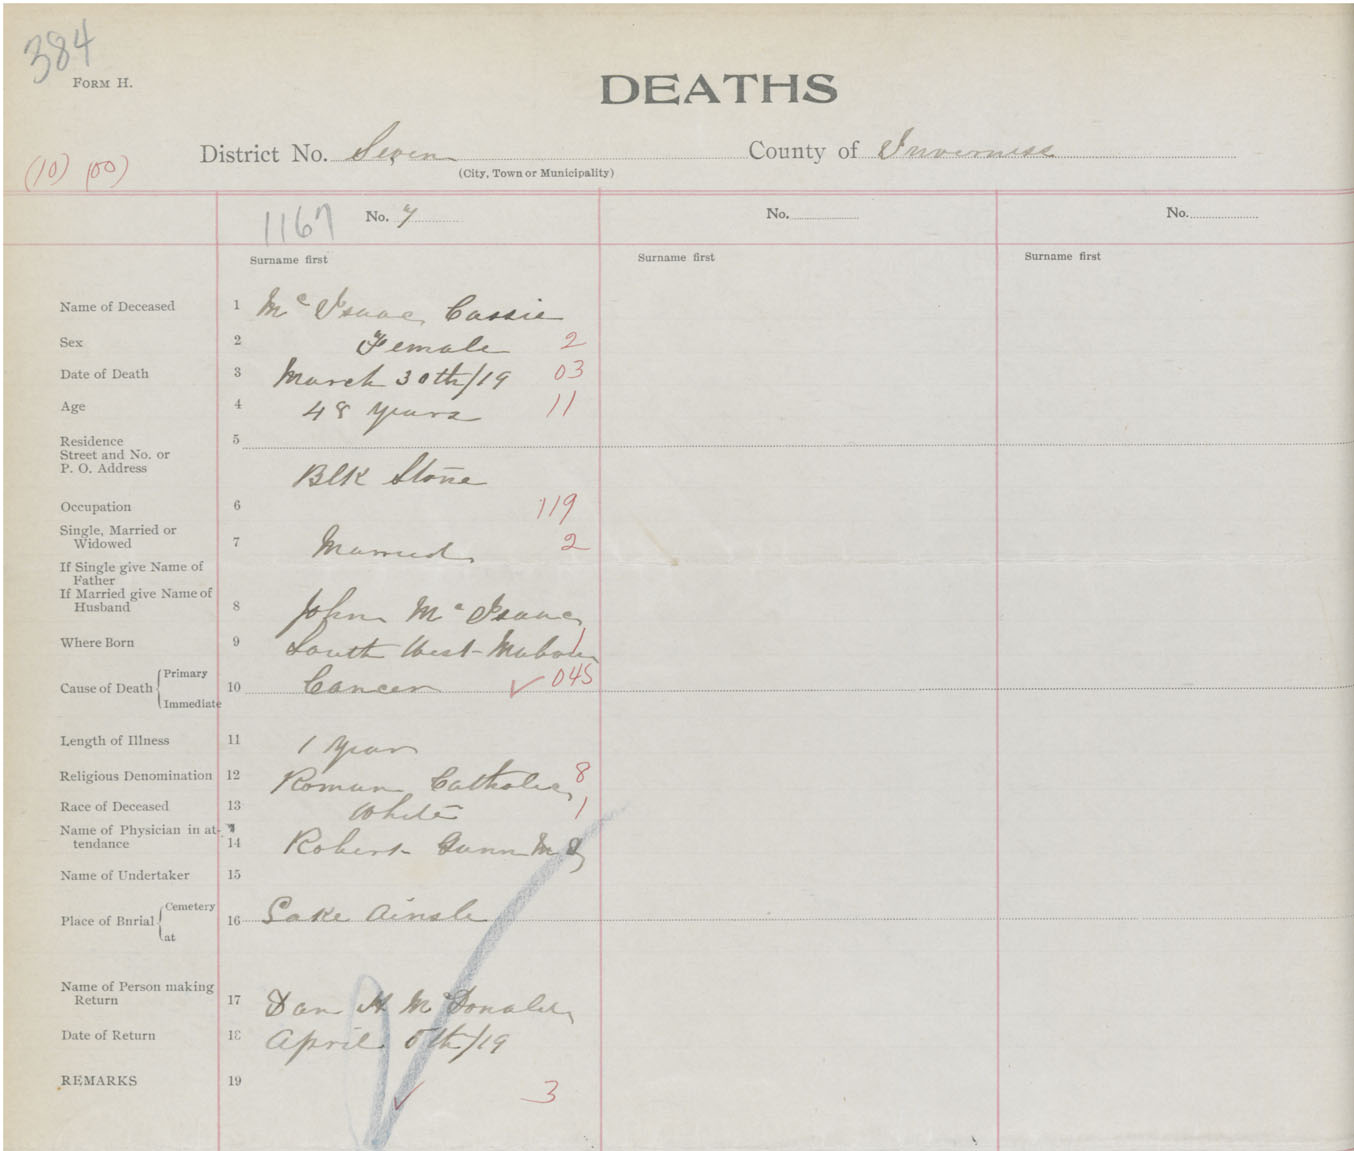 384
FORM H.
DEATHS
District No. Seven County of Inverness
(City, Town or Municipality)
(10) (00)
1167 No. 7 No. No.
Surname first Surname first Surname first
Name of Deceased 1 Mc Isaac Cassie
Sex 2 Female 2
Date of Death 3 March 30th/19 03
Age 4 48 years 11
Residence 5
Street and No. or
P. O. Address
Blk Stone
Occupation 6 119
Single, Married or
Widowed 7 Married 2
If Single give Name of
Father
If Married give Name of
Husband 8 John Mc Isaac
Where Born 9 South West Mabou 1
Cause of Death Primary 10 Cancer 045
Immediate
Length of Illness 11 1 Year
Religious Denomination 12 Roman Catholic 8
Race of Deceased 13 White 1
Name of Physician in at-
tendance 14 Robert Gunn M D
Name of Undertaker 15
Place of Burial Cemetery 16 Lake Ainsle
at
Name of Person making
Return 17 Dan H Mc Donald
Date of Return 18 April 5th/19
REMARKS 19 3